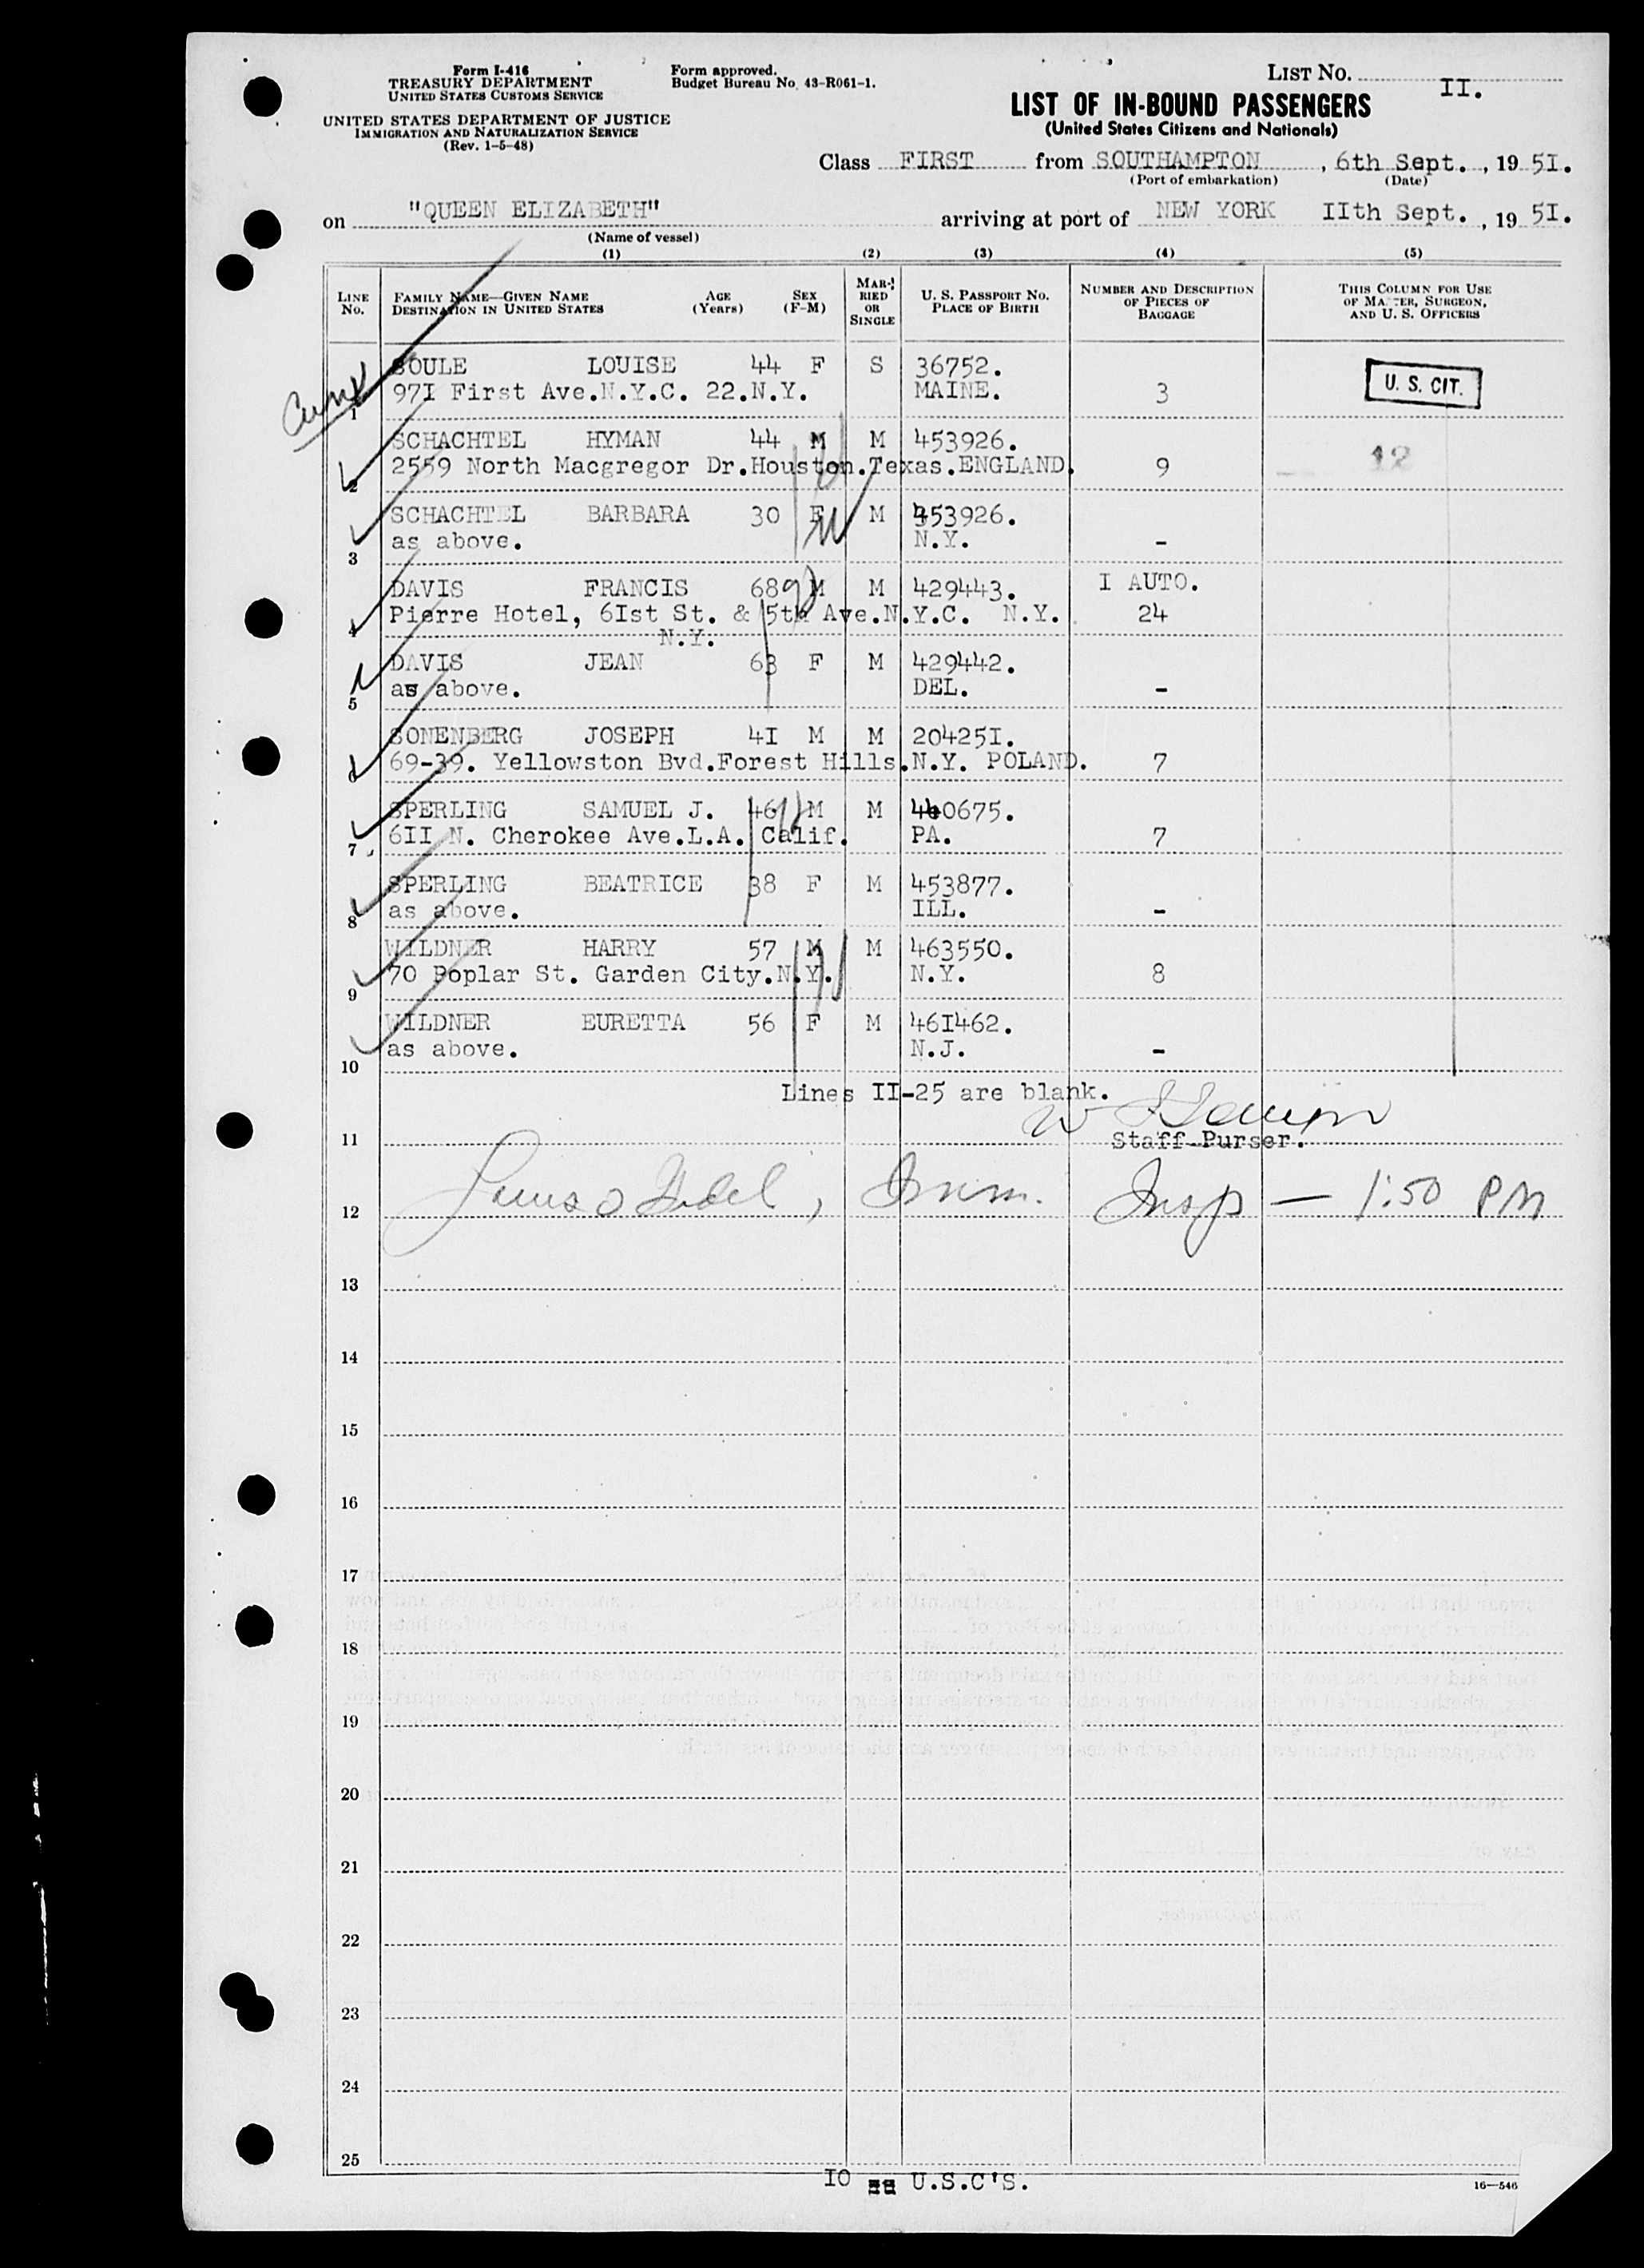 Form I-416
TREASURY DEPARTMENT
UNITED STATES CUSTOMS SERVICE
UNITED STATES DEPARTMENT OF JUSTICE
IMMIGRATION AND NATURALIZATION SERVICE
(Rev. 1-5-48)
Form approved.
Budget Bureau No. 43-R061-1.
LIST NO. II.
LIST OF IN-BOUND PASSENGERS
(United States Citizens and Nationals)
Class FIRST from SOUTHAMPTON, 6th Sept., 19 5I.
(Port of embarkation) (Date)
on "QUEEN ELIZABETH" arriving at port of NEW YORK IIth Sept., 19 5I.
(Name of vessel)
(1) (2) (3) (4) (5)
LINE No. FAMILY NAME—GIVEN NAME DESTINATION IN UNITED STATES AGE (Years) SEX (F-M) MARRIED OR SINGLE U. S. PASSPORT NO. PLACE OF BIRTH NUMBER AND DESCRIPTION OF PIECES OF BAGGAGE THIS COLUMN FOR USE OF MASTER, SURGEON, AND U. S. OFFICERS
SOULE LOUISE 44 F S 36752.
1 97I First Ave.N.Y.C. 22.N.Y. MAINE. 3 U. S. CIT.
SCHACHTEL HYMAN 44 M M 453926.
2 2559 North Macgregor Dr.Houston.Texas.ENGLAND. 9 12
SCHACHTEL BARBARA 30 F M 453926.
3 as above. N.Y. -
DAVIS FRANCIS 68 M M 429443. I AUTO.
4 Pierre Hotel, 6Ist St. & 5th Ave.N.Y.C. N.Y. 24
N.Y.
DAVIS JEAN 63 F M 429442.
5 as above. DEL. -
SONENBERG JOSEPH 4I M M 20425I.
6 69-39. Yellowston Bvd.Forest Hills.N.Y. POLAND. 7
SPERLING SAMUEL J. 46 M M 440675.
7 6II N. Cherokee Ave.L.A. Calif. PA. 7
SPERLING BEATRICE 38 F M 453877.
8 as above. ILL. -
WILDNER HARRY 57 M M 463550.
9 70 Poplar St. Garden City.N.Y. N.Y. 8
WILDNER EURETTA 56 F M 46I462.
10 as above. N.J. -
Lines II-25 are blank.
11 Staff Purser.
12 Imm. Insp — 1:50 PM
13
14
15
16
17
18
19
20
21
22
23
24
25
IO U.S.C'S.
16—546